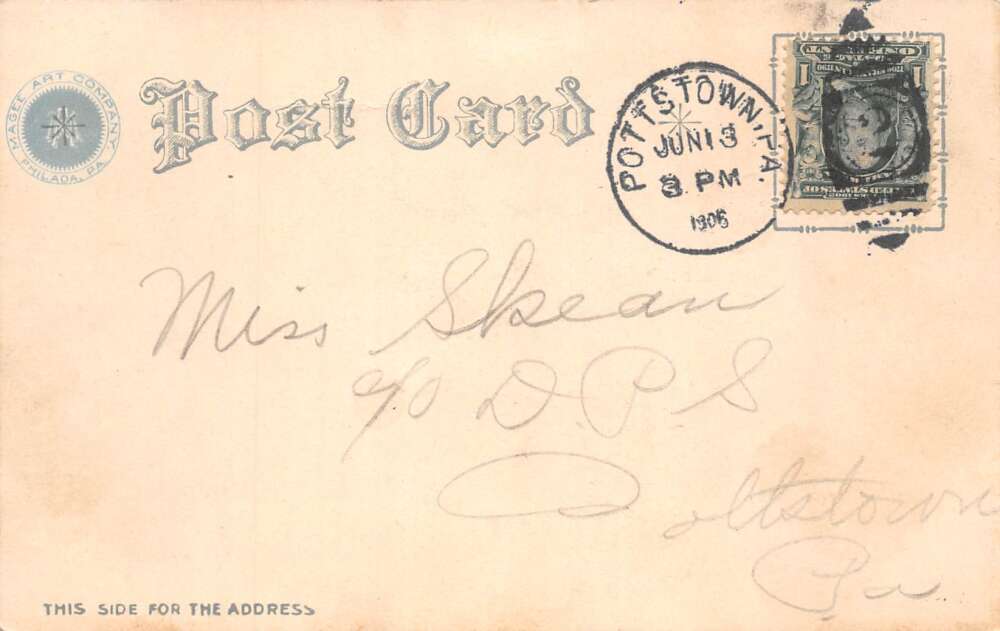 MAGEE ART COMPANY.
PHILADA, PA.
Post Card
POTTSTOWN, PA.
JUN 13
8 PM
1906
1
1
Miss Skean
c/o D P S
Pottstown
Pa
THIS SIDE FOR THE ADDRESS